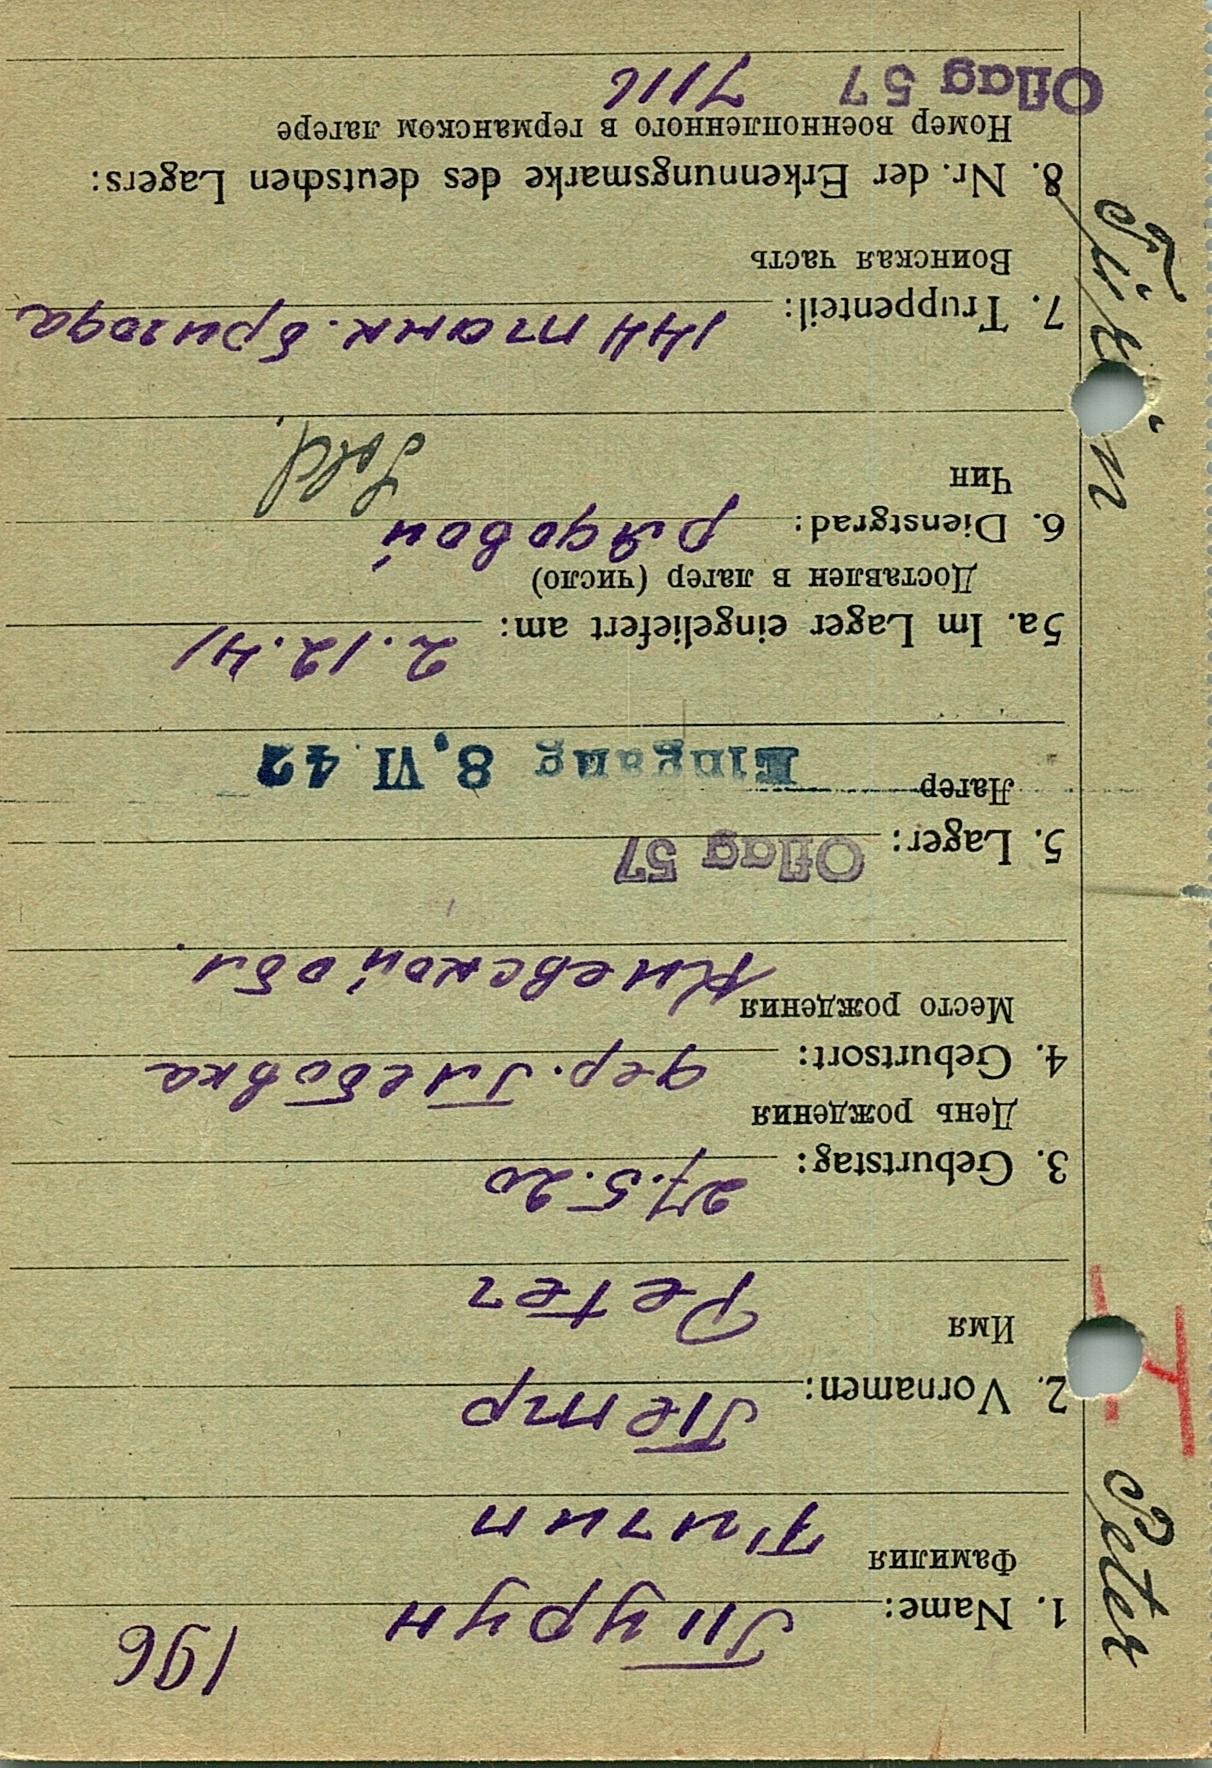 196
1. Name: Тирун
Фамилия
2. Vornamen: Петр
Имя Peter
3. Geburtstag: 27.5.20
День рождения
4. Geburtsort: дер. Глебовка
Место рождения Киевской обл.
5. Lager: Oflag 57
Лагер Eingang 8. VI 42
5a. Im Lager eingeliefert am: 2.12.41
Доставлен в лагер (число)
6. Dienstgrad: рядовой
Чин Sold.
7. Truppenteil: 144 танк. бригада
Воинская часть
8. Nr. der Erkennungsmarke des deutschen Lagers:
Номер военнопленного в германском лагере
Oflag 57 7116
Peter